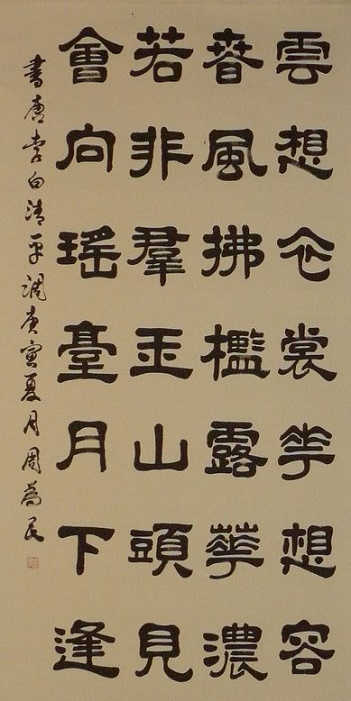 雲想衣裳花想容
春風拂檻露華濃
若非羣玉山頭見
會向瑤臺月下逢
書唐李白清平調庚寅夏月周為民